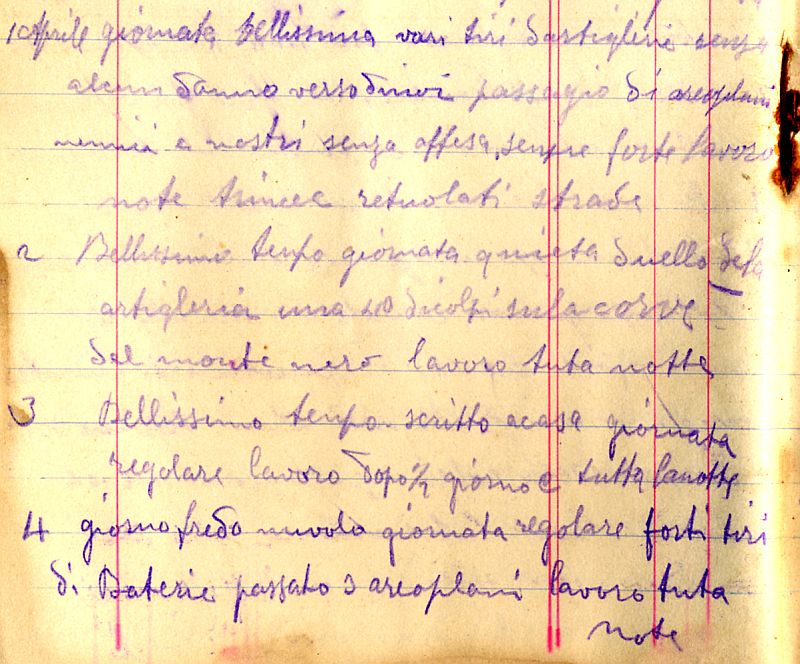 1 Aprile giornata bellissima vari tiri dartiglierie senza
alcun danno verso di noi passagio di areoplani
nemici e nostri senza offesa, sempre forte lavoro
note trincee reticolati strade
2 Bellissimo tempo giornata quieta duello dela
artiglieria una 40 di colpi sula
del monte nero lavoro tuta notte
3 Bellissimo tempo scritto a casa giornata
regolare lavoro dopo ½ giorno e tutta la notte
4 giorno fredo nuvolo giornata regolare forti tiri
di Baterie passato 3 areoplani lavoro tuta
note